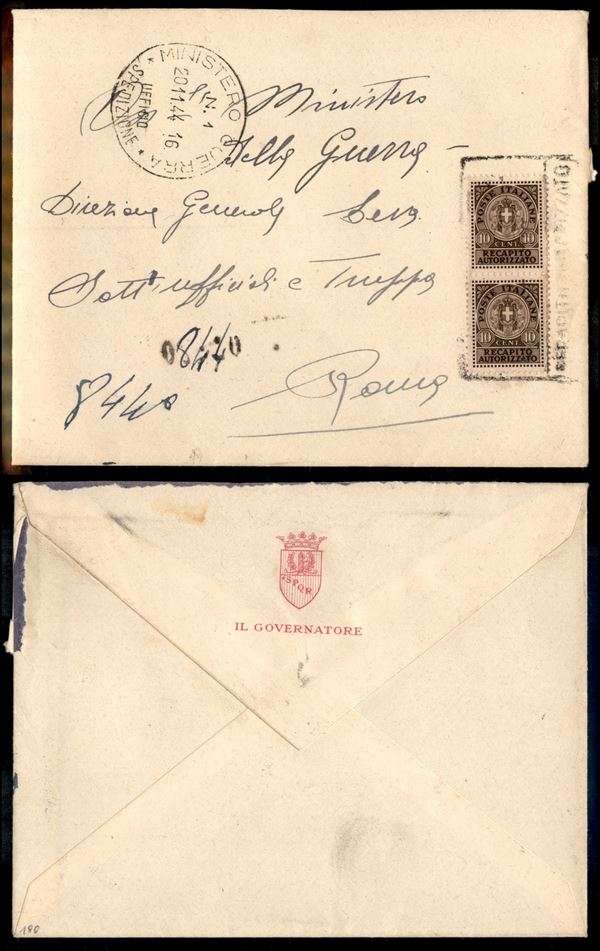 MINISTERO GUERRA
20.11.44 16
UFFICIO
SPEDIZIONE
N. 1
Al Ministero
Della Guerra -
Direzione Generale Leva
Sott'ufficiali e Truppa
8440
8440
Roma
POSTE ITALIANE
10 CENT 10
RECAPITO
AUTORIZZATO
POSTE ITALIANE
10 CENT 10
RECAPITO
AUTORIZZATO
SPQR
IL GOVERNATORE
190